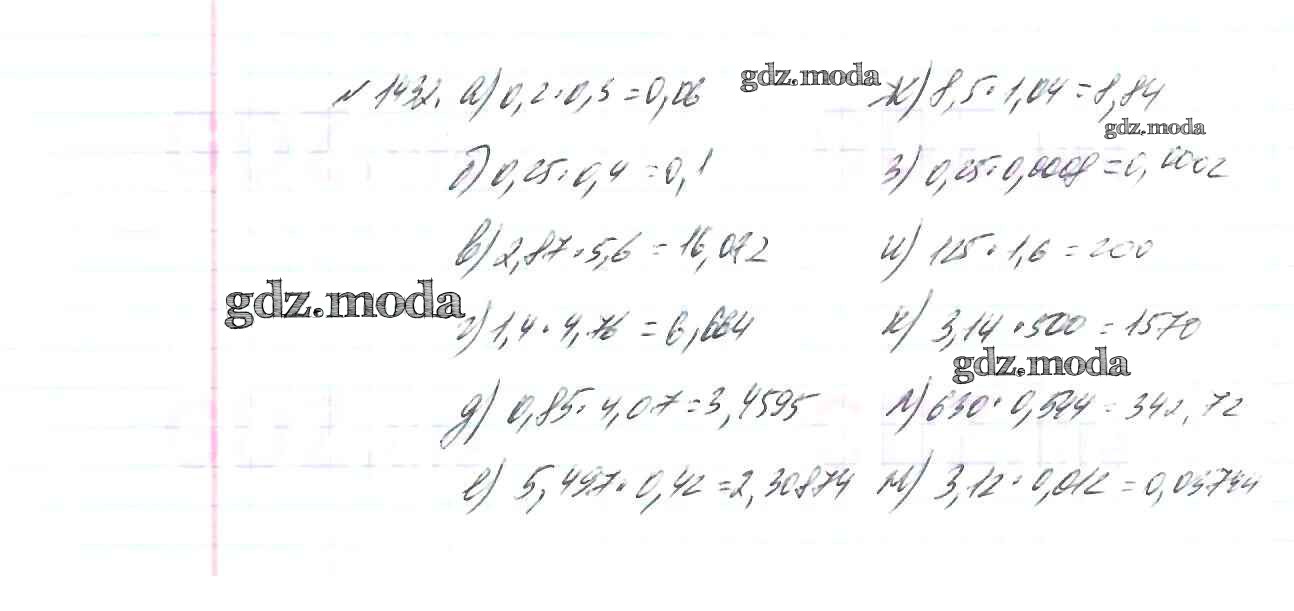 № 1432. а) 0,2·0,3=0,06
gdz.moda
ж) 8,5·1,04=8,84
gdz.moda
б) 0,25·0,4=0,1
з) 0,25·0,0008=0,0002
в) 2,87·5,6=16,072
и) 125·1,6=200
gdz.moda
г) 1,4·4,76=6,664
к) 3,14·500=1570
gdz.moda
д) 0,85·4,07=3,4595
л) 630·0,544=342,72
е) 5,497·0,42=2,30874
м) 3,12·0,012=0,03744